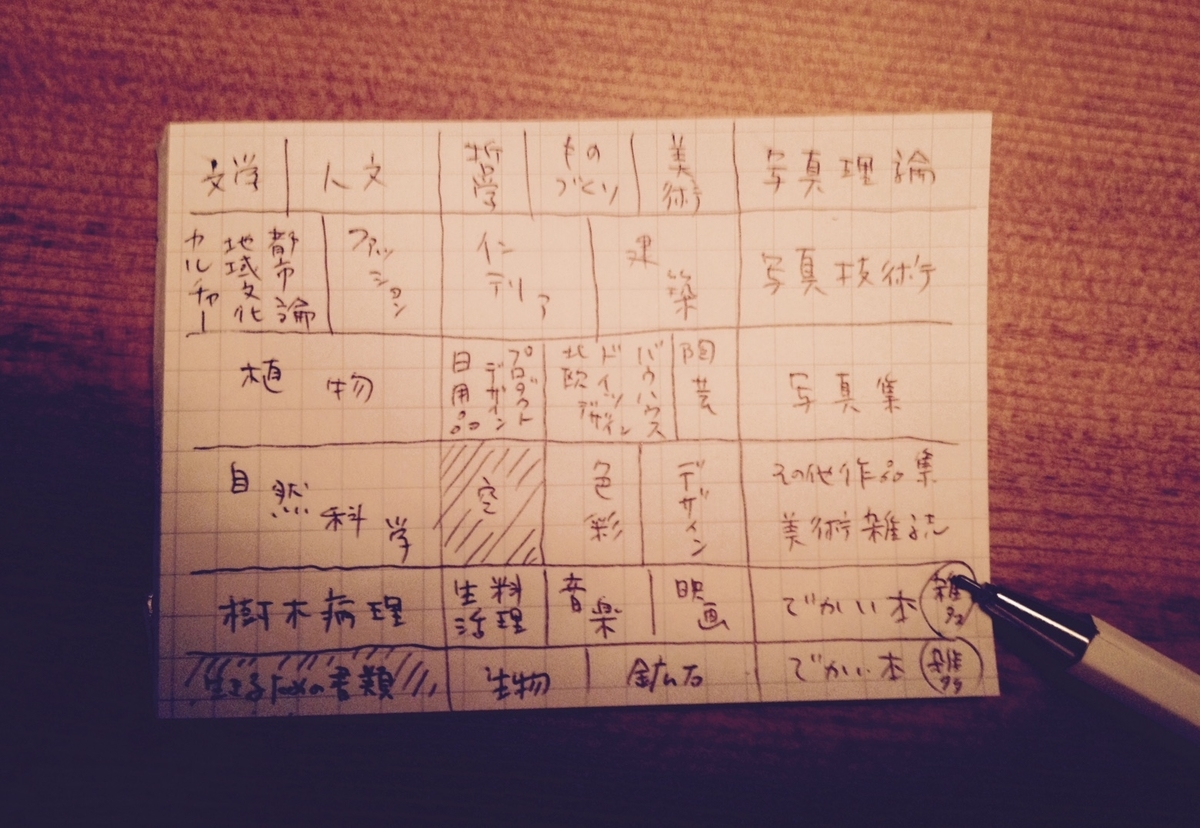 文学
人文
哲学
もの
づくり
美術
写真理論
都市論
地域文化
カルチャー
ファッション
インテリア
建築
写真技術
植物
プロダクト
デザイン
日用品
バウハウス
ドイツ
北欧デザイン
陶芸
写真集
自然科学
空
色彩
デザイン
その他作品集
美術雑誌
樹木病理
料理
生活
音楽
映画
でかい本 雑多
生きるための書類
生物
鉱石
でかい本 雑多